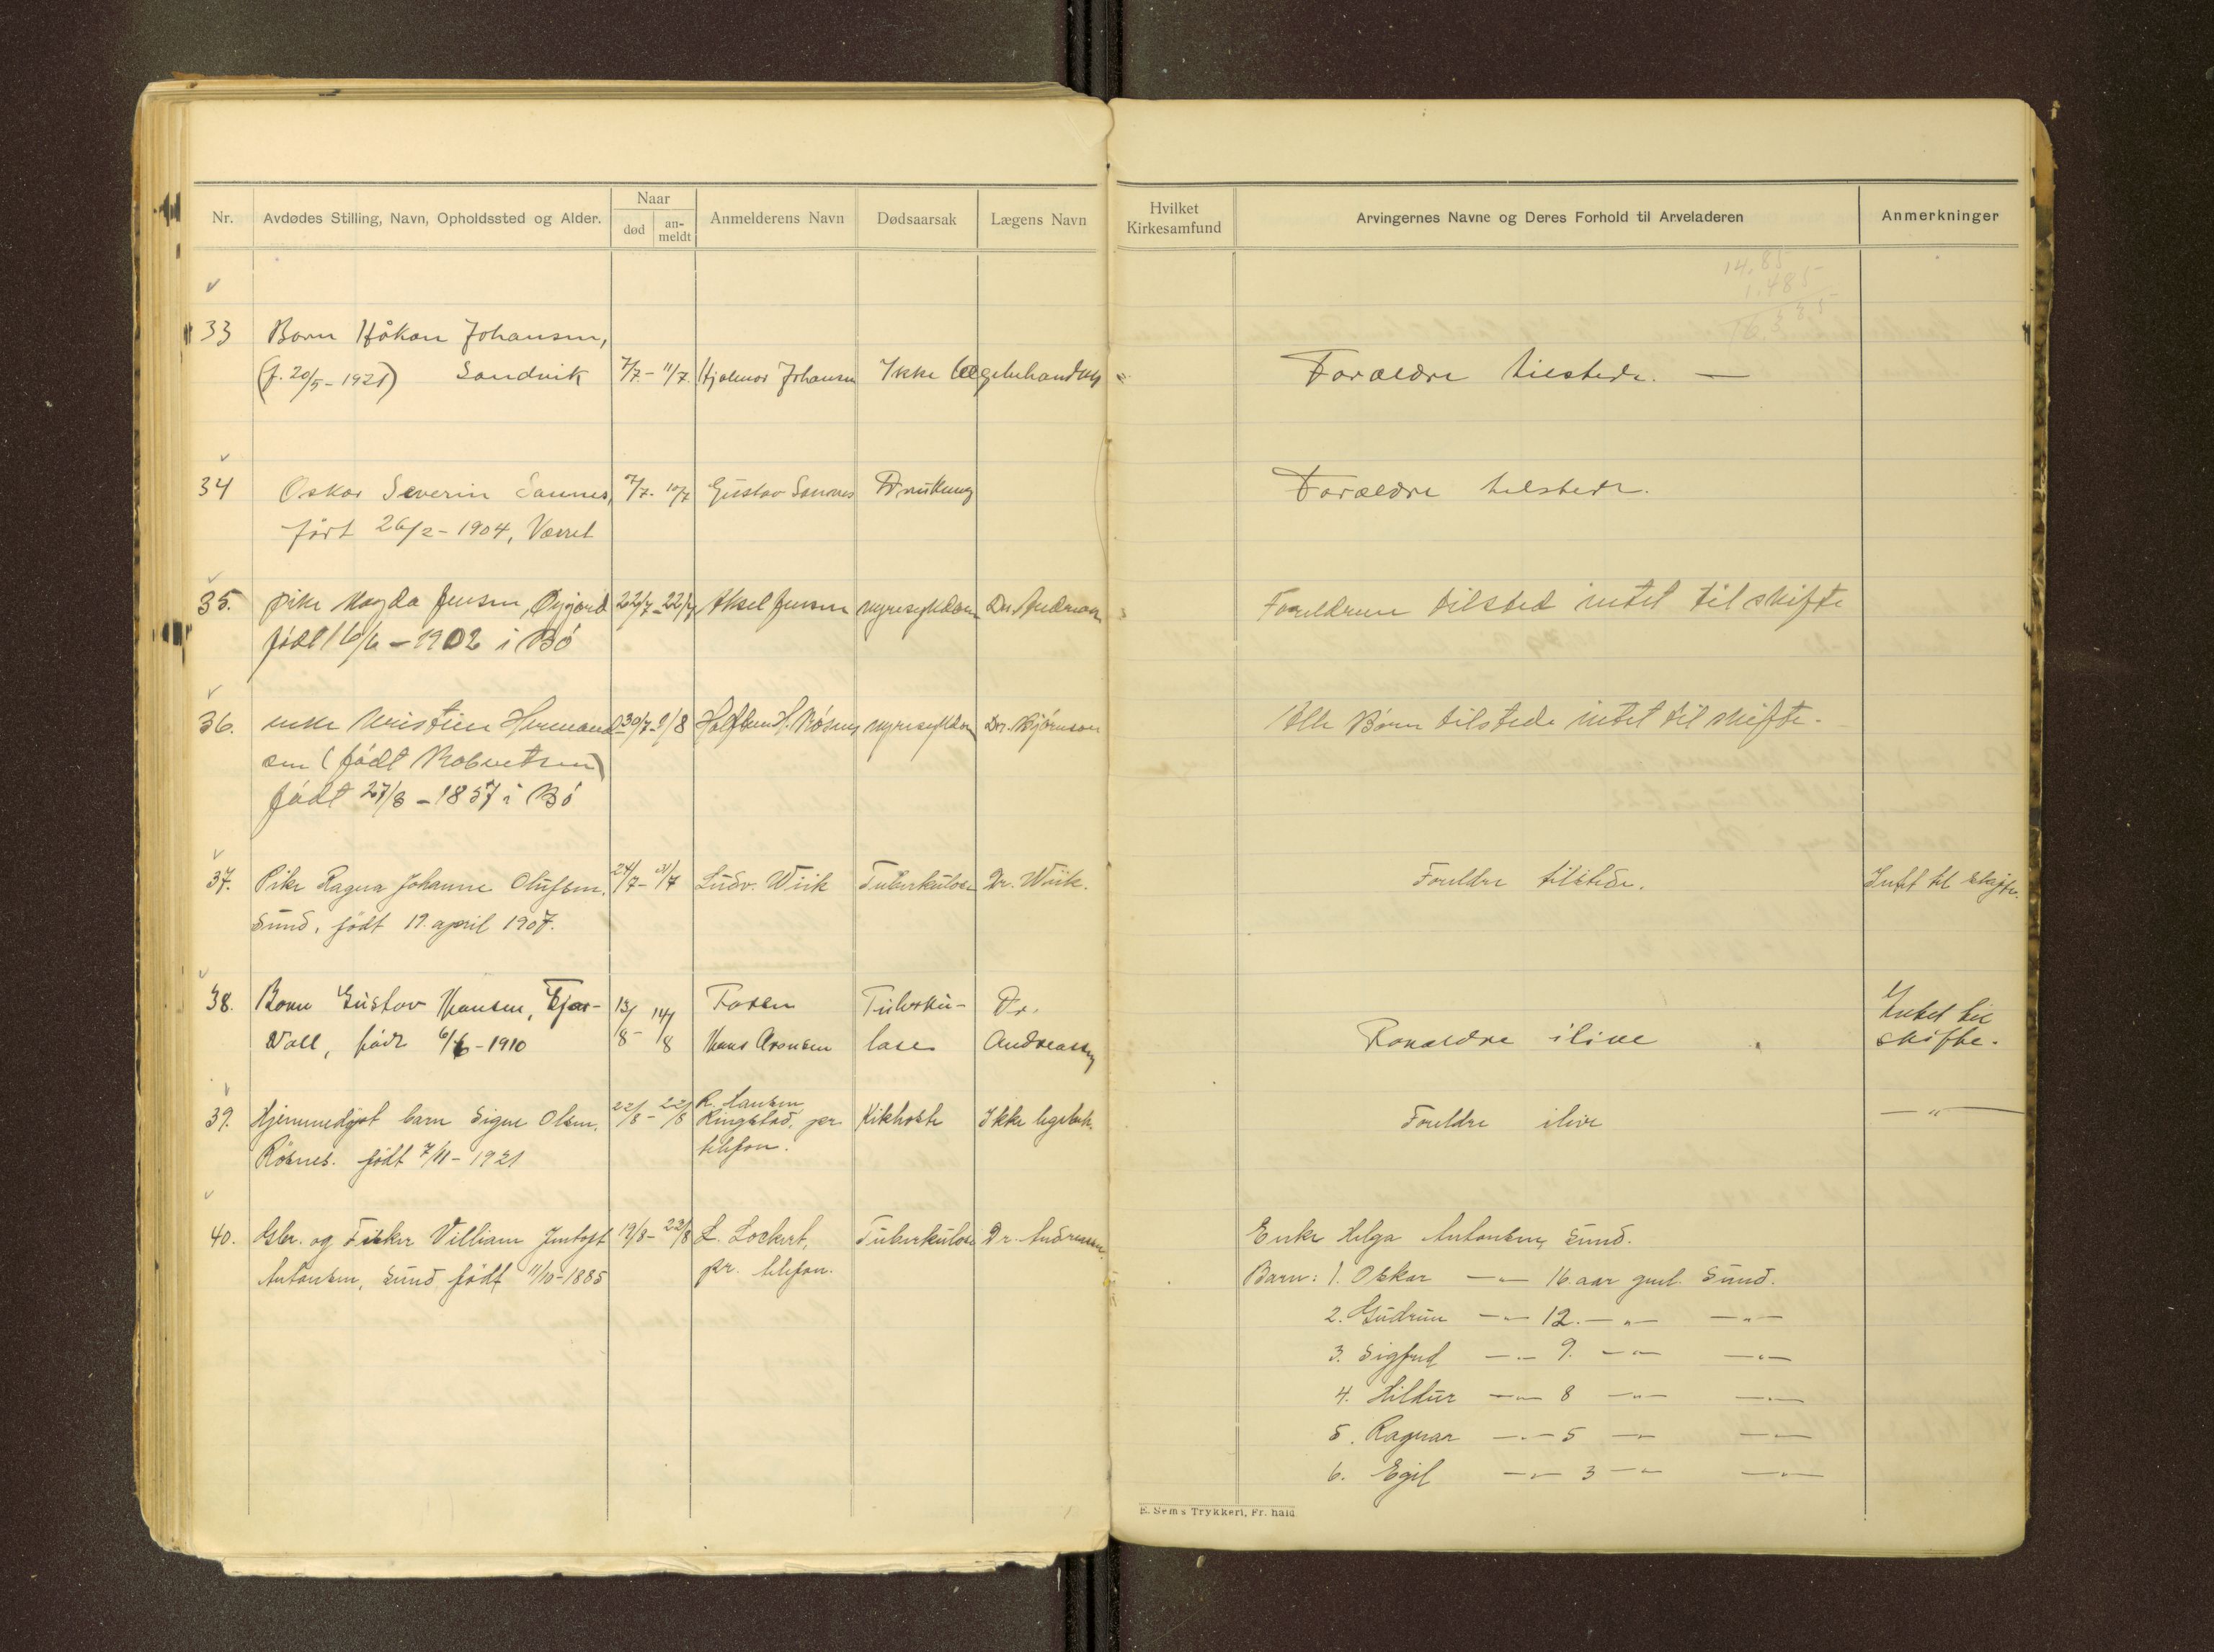 Nr. Avdødes Stilling, Navn, Opholdssted og Alder. Naar død an-meldt Anmelderens Navn Dødsaarsak Lægens Navn Hvilket Kirkesamfund Arvingernes Navne og Deres Forhold til Arveladeren Anmerkninger
14.85
1.485
33 Barn Håkon Johansen,
(f. 20/5-1921) Sandvik 7/7-11/7 Hjalmar Johansen Ikke lægebehandlet Forældre tilstede. —
34 Oskar Severin Sannes, 7/7-10/7 Gustav Sannes Drukning Forældre tilstede.
født 26/2-1904, Værret
35. pike Magda Jensen, Øygard 22/7-22/7 Aksel Jensen nyresykdom Dr. Andreasen Foreldrene tilsted intet til skifte
født 16/6-1902 i Bö
36. enke Kristine Hermands- 30/7-9/8 nyresykdom Dr. Bjørnson Alle Børn tilstede intet til skifte.
sen (født Robertsen)
født 27/8-1857 i Bö
37. Pike Ragna Johanne Olufsen, 24/7-31/7 Ludv. Wiik Tuberkulose Dr. Wiik. Foreldre tilstede. Intet til skifte.
Sund, født 19. april 1907.
38. Barn Gustav Hansen, Fjær- 13/8-14/8 Faren Tuberku- Dr. Intet til
voll, født 6/6-1910 Hans Aronsen lose Andreassen Forældre ilive skifte.
39. Hjemmedøpt barn Signe Olsen, 22/8-22/8 R. Hansen, Ringstad, pr. Kikhoste Ikke legebeh. Foreldre ilive —"—
Røsnes. født 7/11-1921 telefon.
40. Gbr. og Fisker Villiam Jentoft 19/8-23/8 L. Lockert, Tuberkulose Dr. Andreassen. Enke Helga Antonsen, Sund.
Antonsen, Sund født 11/10-1885 pr. telefon. Barn: 1. Oskar —"— 16 aar gml. Sund.
2. Gudrun —"— 12. —"— —"—
3. Sigfred —"— 9. —"— —"—
4. Hildur —"— 8 —"— —"—
5. Ragnar —"— 5 —"— —"—
6. Egil —"— 3 —"— —"—
E. Sem's Trykkeri, Fr. hald